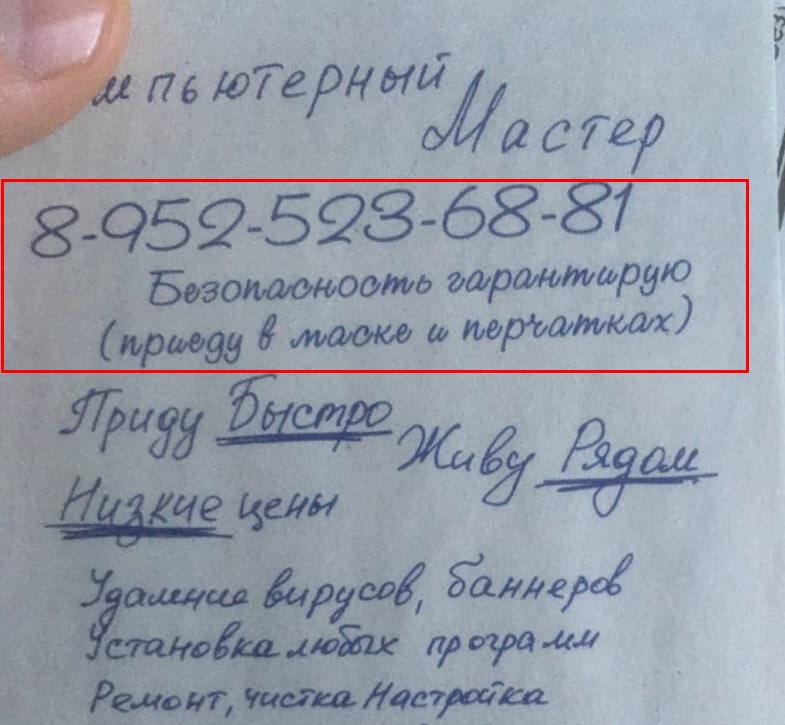 мпьютерный
Мастер
8-952-523-68-81
Безопасность гарантирую
(приеду в маске и перчатках)
Приду Быстро
Живу Рядом
Низкие цены
Удаление вирусов, баннеров
Установка любых программ
Ремонт, чистка Настройка